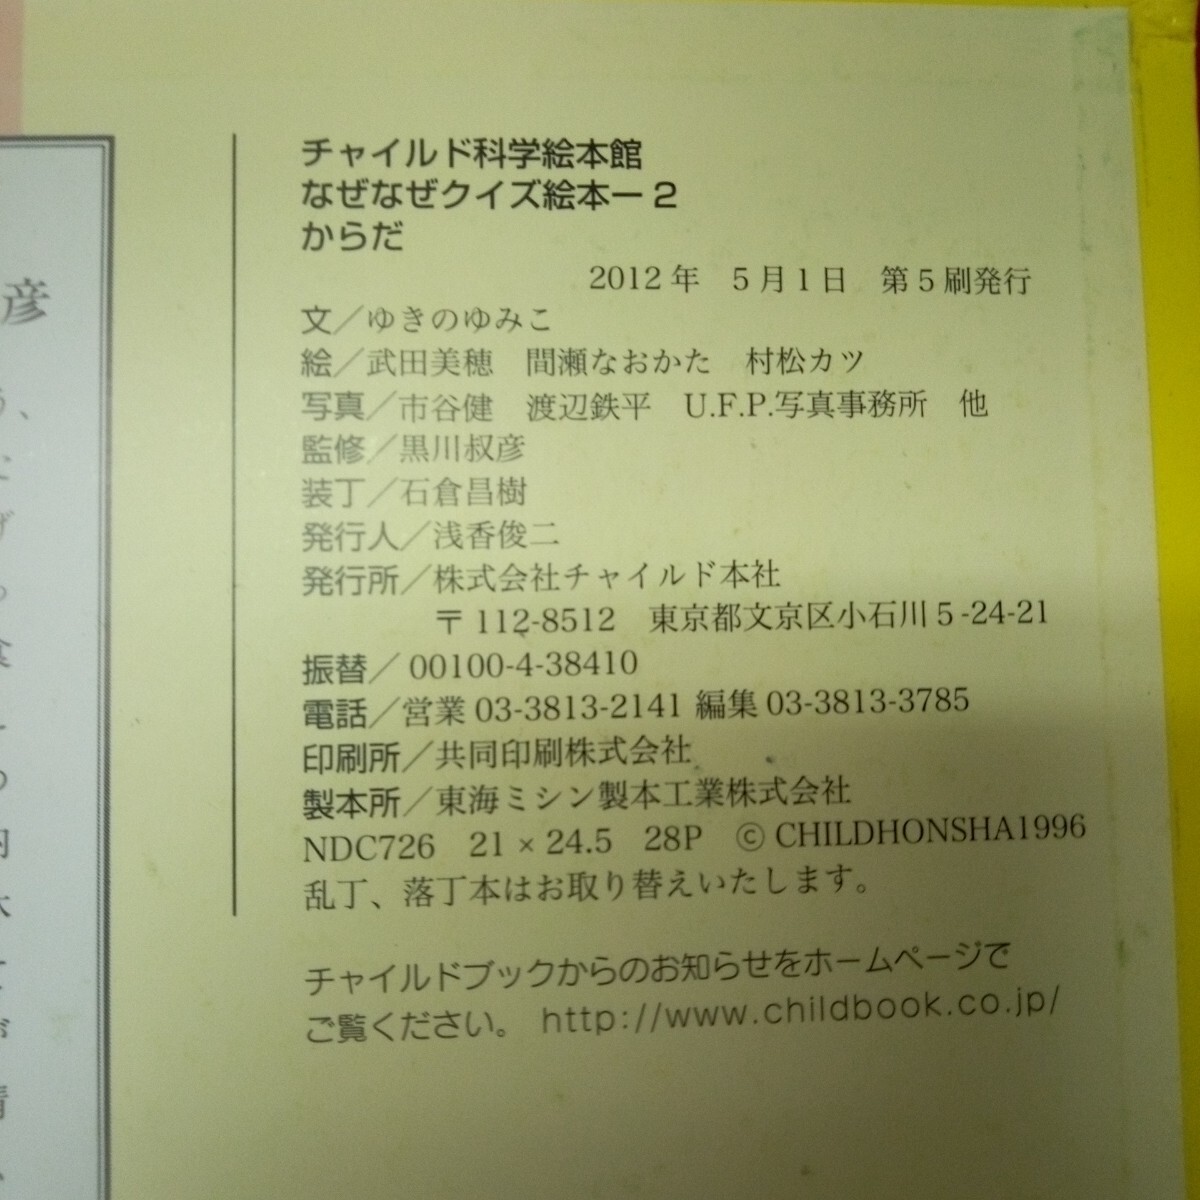 チャイルド科学絵本館
なぜなぜクイズ絵本ー2
からだ
2012年 5月1日 第5刷発行
文／ゆきのゆみこ
絵／武田美穂 間瀬なおかた 村松カツ
写真／市谷健 渡辺鉄平 U.F.P.写真事務所 他
監修／黒川叔彦
装丁／石倉昌樹
発行人／浅香俊二
発行所／株式会社チャイルド本社
〒112-8512 東京都文京区小石川5-24-21
振替／00100-4-38410
電話／営業03-3813-2141 編集03-3813-3785
印刷所／共同印刷株式会社
製本所／東海ミシン製本工業株式会社
NDC726 21×24.5 28P ©CHILDHONSHA1996
乱丁、落丁本はお取り替えいたします。
チャイルドブックからのお知らせをホームページで
ご覧ください。 http://www.childbook.co.jp/
彦